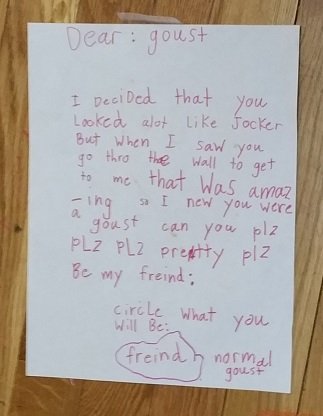 Dear: goust
I Decided that you
Looked alot Like Jocker
But when I saw you
go thro the wall to get
to me that was amaz
-ing so I new you were
a goust can you plz
pLz pLz pretty plz
Be my freind:
circle what you
will Be:
freind normal
goust